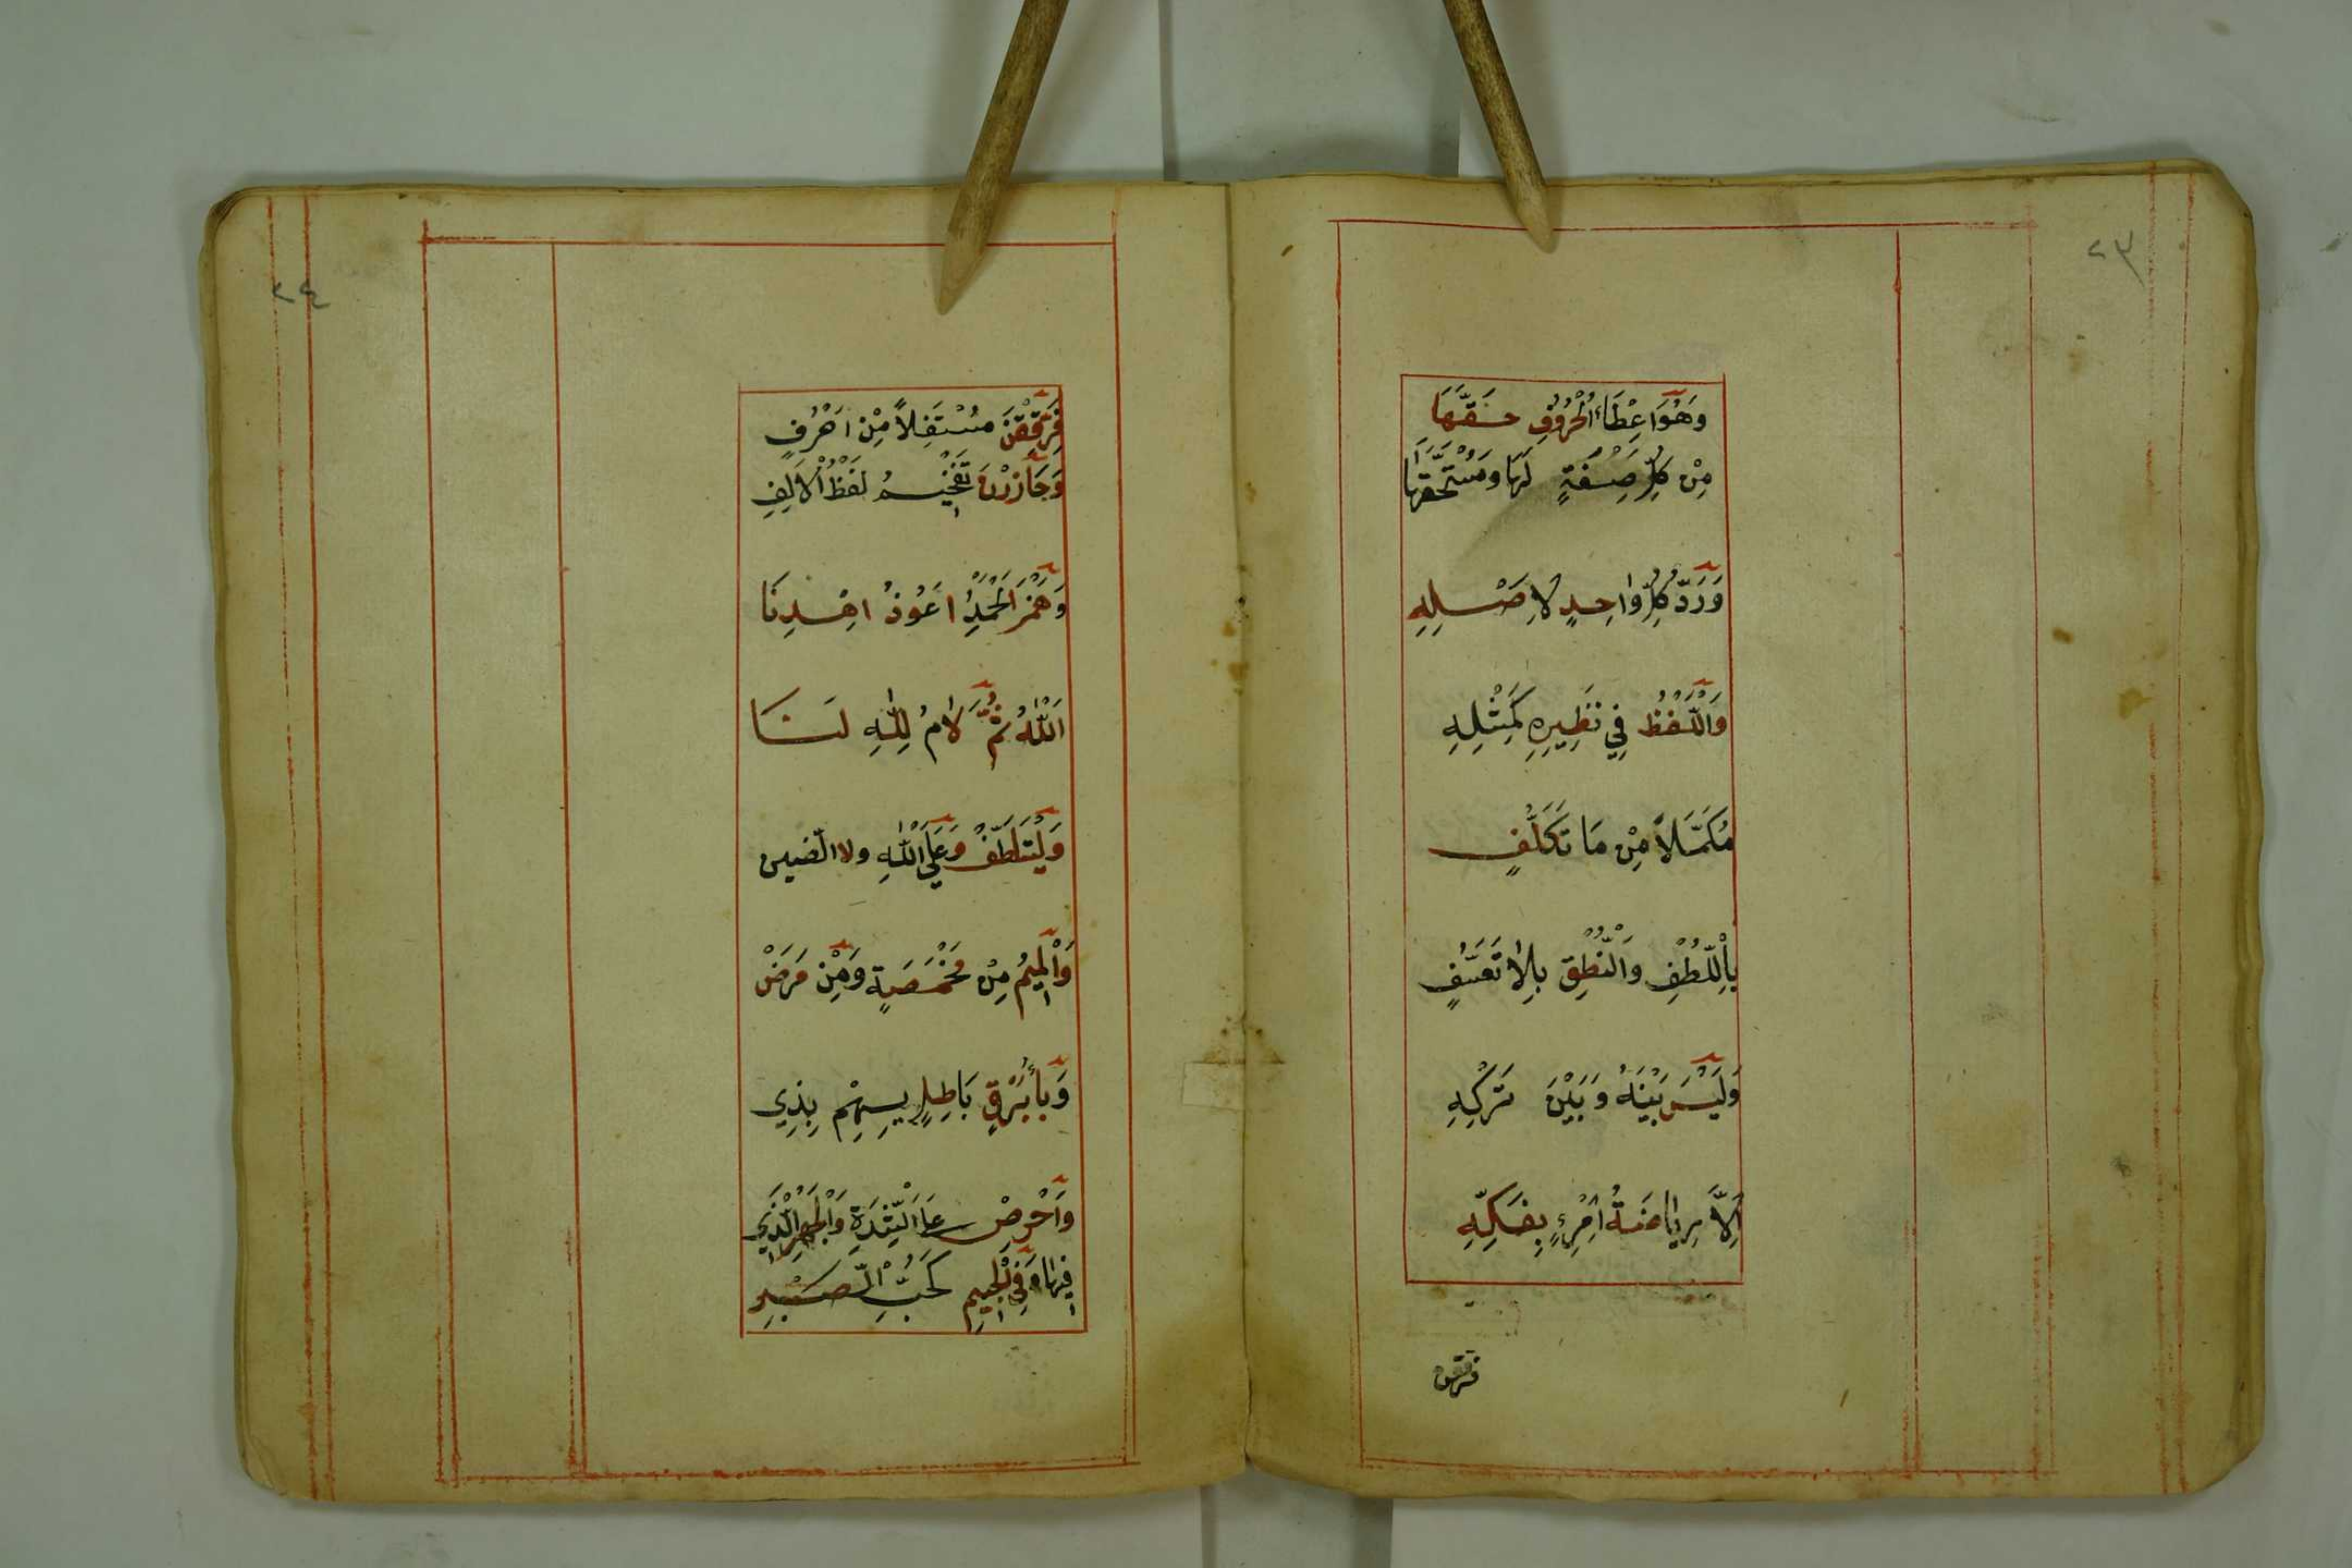 ٢٣
وَهُوَ اِعْطَاءُ الْحُرُوفِ حَقَّهَا
مِنْ كُلِّ صِفَةٍ لَهَا وَمُسْتَحَقَّهَا
وَرَدُّ كُلِّ وَاحِدٍ لِاَصْلِهِ
وَاللَّفْظُ فِي نَظِيرِهِ كَمِثْلِهِ
مُكَمَّلاً مِنْ مَا تَكَلُّفٍ
بِاللُّطْفِ وَالنُّطْقِ بِلَا تَعَسُّفٍ
وَلَيْسَ بَيْنَهُ وَبَيْنَ تَرْكِهِ
اِلَّا رِيَاضَةُ امْرِءٍ بِفَكِّهِ
فرققن
٢٤
فَرَقِّقَنْ مُسْتَفِلاً مِنْ اَحْرُفٍ
وَحَاذِرَنْ تَفْخِيمَ لَفْظِ الْاَلِفِ
وَهَمْزَ اَلْحَمْدُ اَعُوذُ اِهْدِنَا
اَللّٰهُ ثُمَّ لَامُ لِلّٰهِ لَنَا
وَلْيَتَلَطَّفْ وَعَلَى اللّٰهِ ولا الضين
وَالْمِيمُ مِنْ مَخْمَصَةٍ وَمِنْ مَرَضْ
وَبَاءُ بَرْقٍ بَاطِلٍ بِهِمْ بِذِي
وَاحْرِصْ عَلَى الشِّدَّةِ وَالْجَهْرِ الَّذِي
فِيهَا وَفِي الْجِيمِ كَحُبِّ الصَّبْرِ